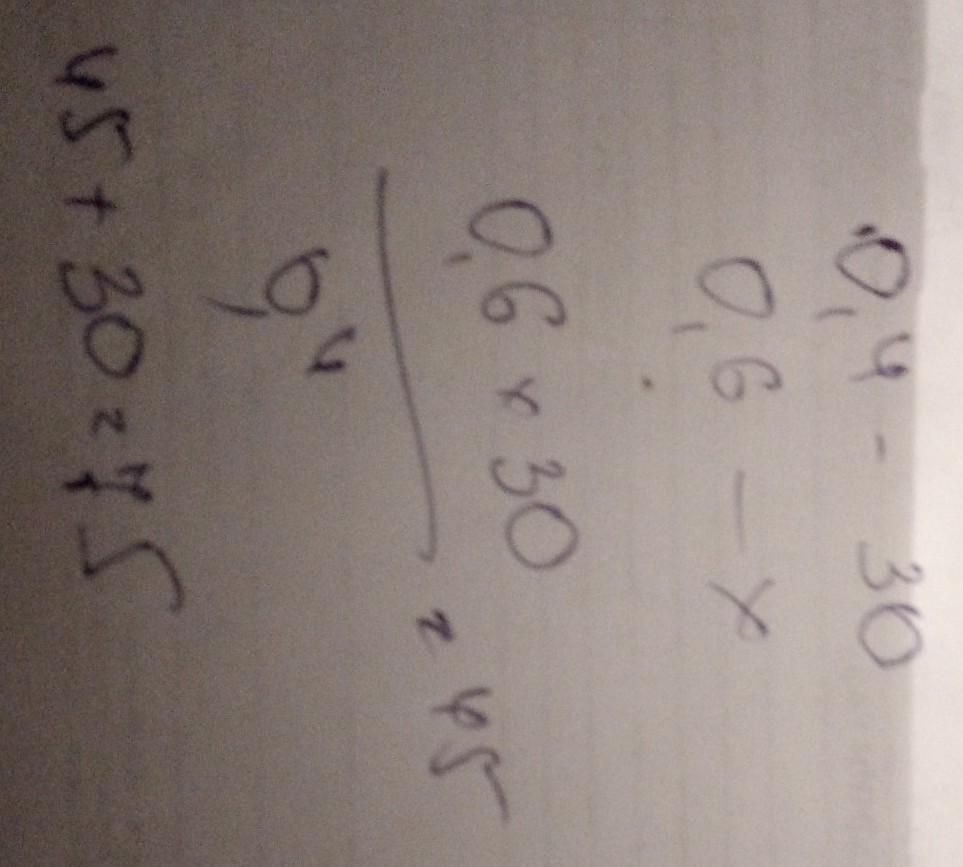 0,4 - 30
0,6 — x
0,6 x 30
0,4
= 45
45 + 30 = 75